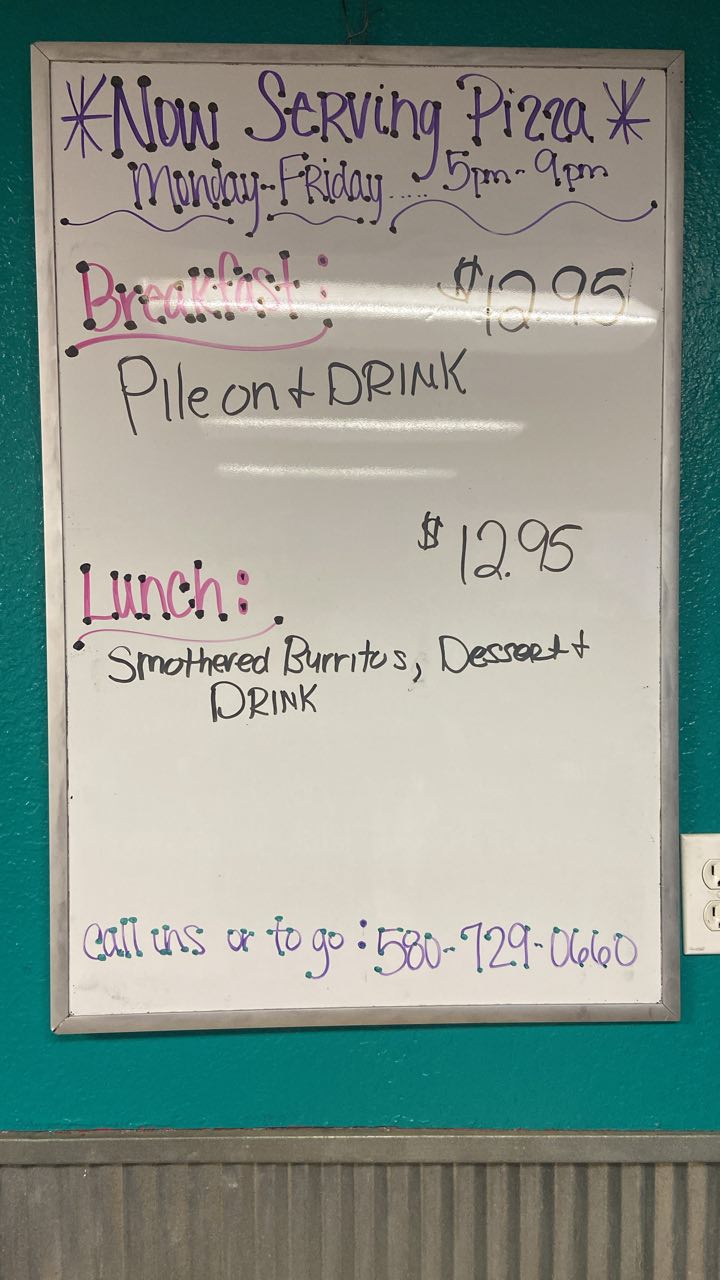 *Now Serving Pizza*
Monday-Friday.....5pm-9pm
Breakfast: $12.95
Pile on + DRINK
$12.95
Lunch:
Smothered Burritos, Dessert +
DRINK
call ins or to go: 580-729-0660